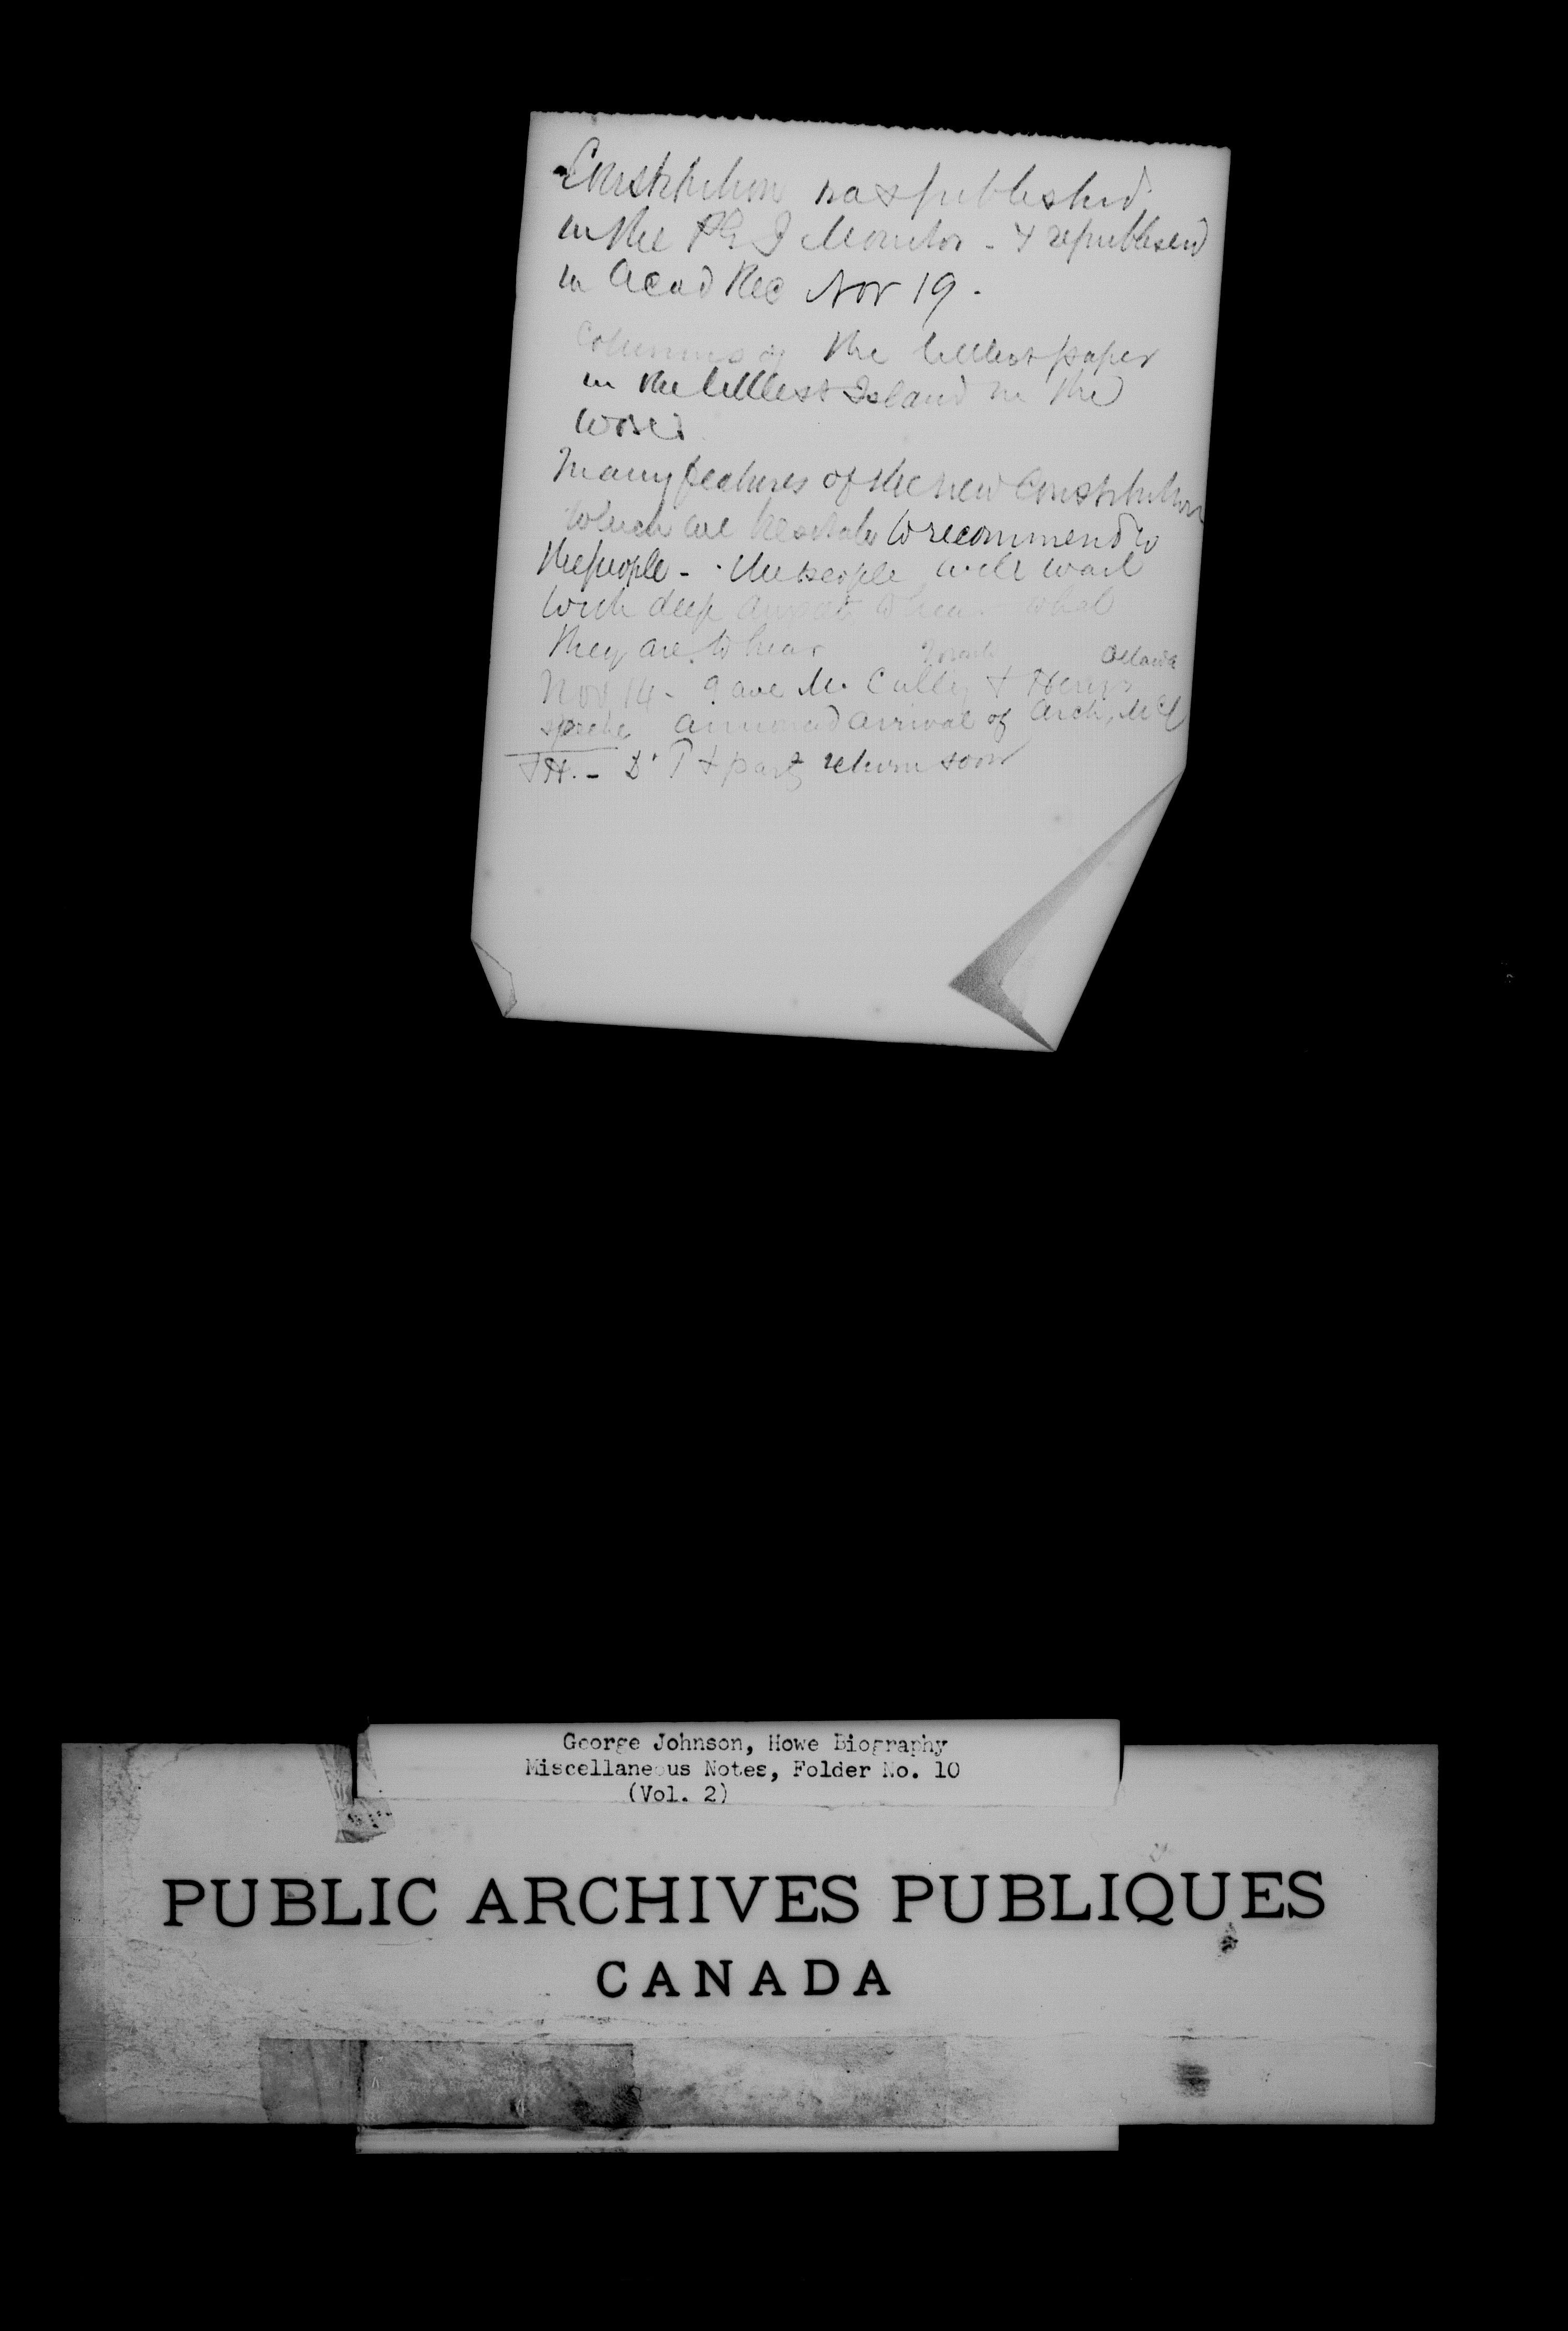 Constitution was published
in the P E I Monitor - & republished
in Acad Rec Nov 19.
Columns of the littlest paper
in the littlest Island in the
World
Many features of the new Constitution
which we hesitate to recommend to
the people - . The people will wait
with deep anxiety to hear what
they are to hear
Toronto Ottawa
Nov 14 - gave McCully & Henry's
speeches announced arrival of Arch, McC
& H. - Dr T & party return soon
George Johnson, Howe Biography
Miscellaneous Notes, Folder No. 10
(Vol. 2)
PUBLIC ARCHIVES PUBLIQUES
CANADA